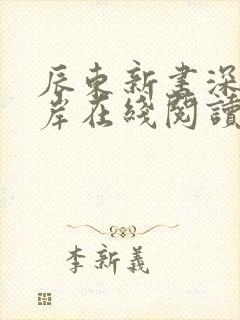 辰东新書深
岸在綫閱讀
李新義